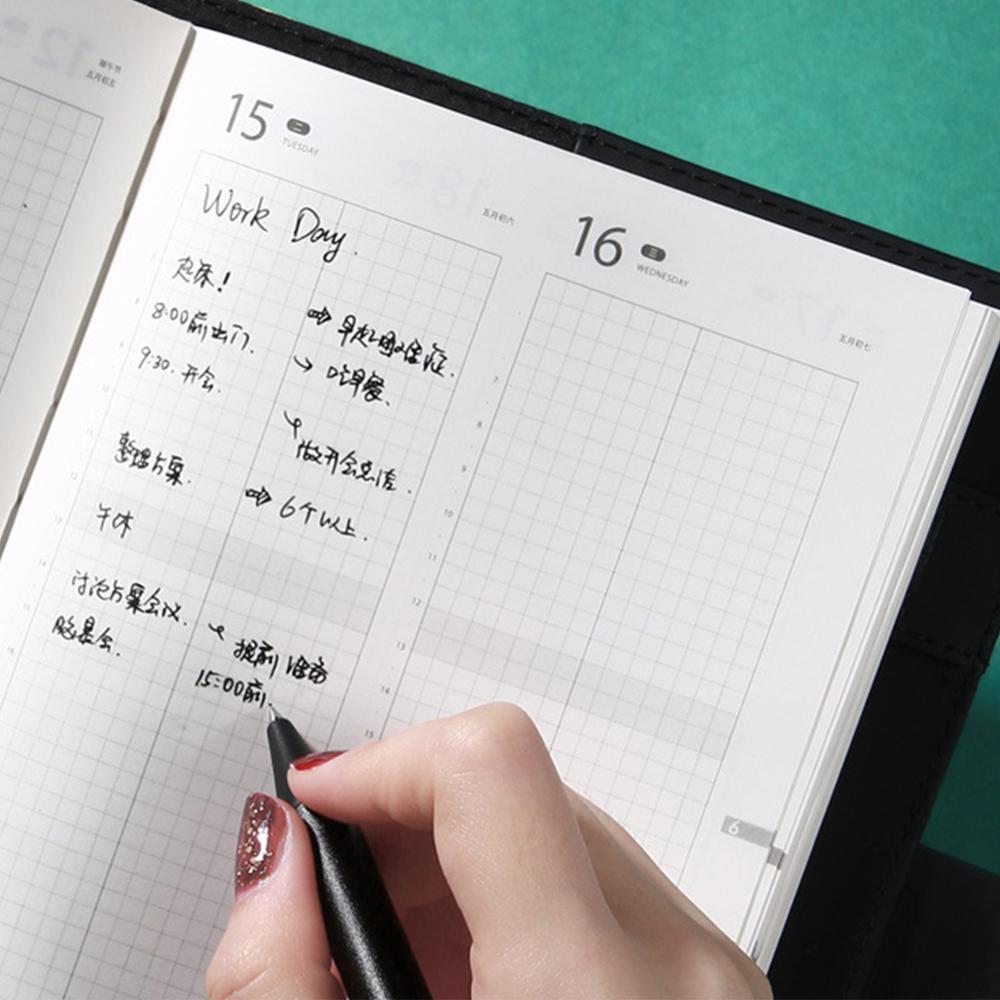 端午节
五月初五
15 二
TUESDAY
五月初六
Work Day.
起床!
8:00前出门.
⇒ 早起
9:30. 开会.
↘ 吃早餐、
↘ 做开会总结.
整理方案.
⇒ 6个以上.
午休
讨论方案会议.
↘ 提前准备
15:00前.
16 三
WEDNESDAY
五月初七
7
8
9
10
11
12
13
14
15
6